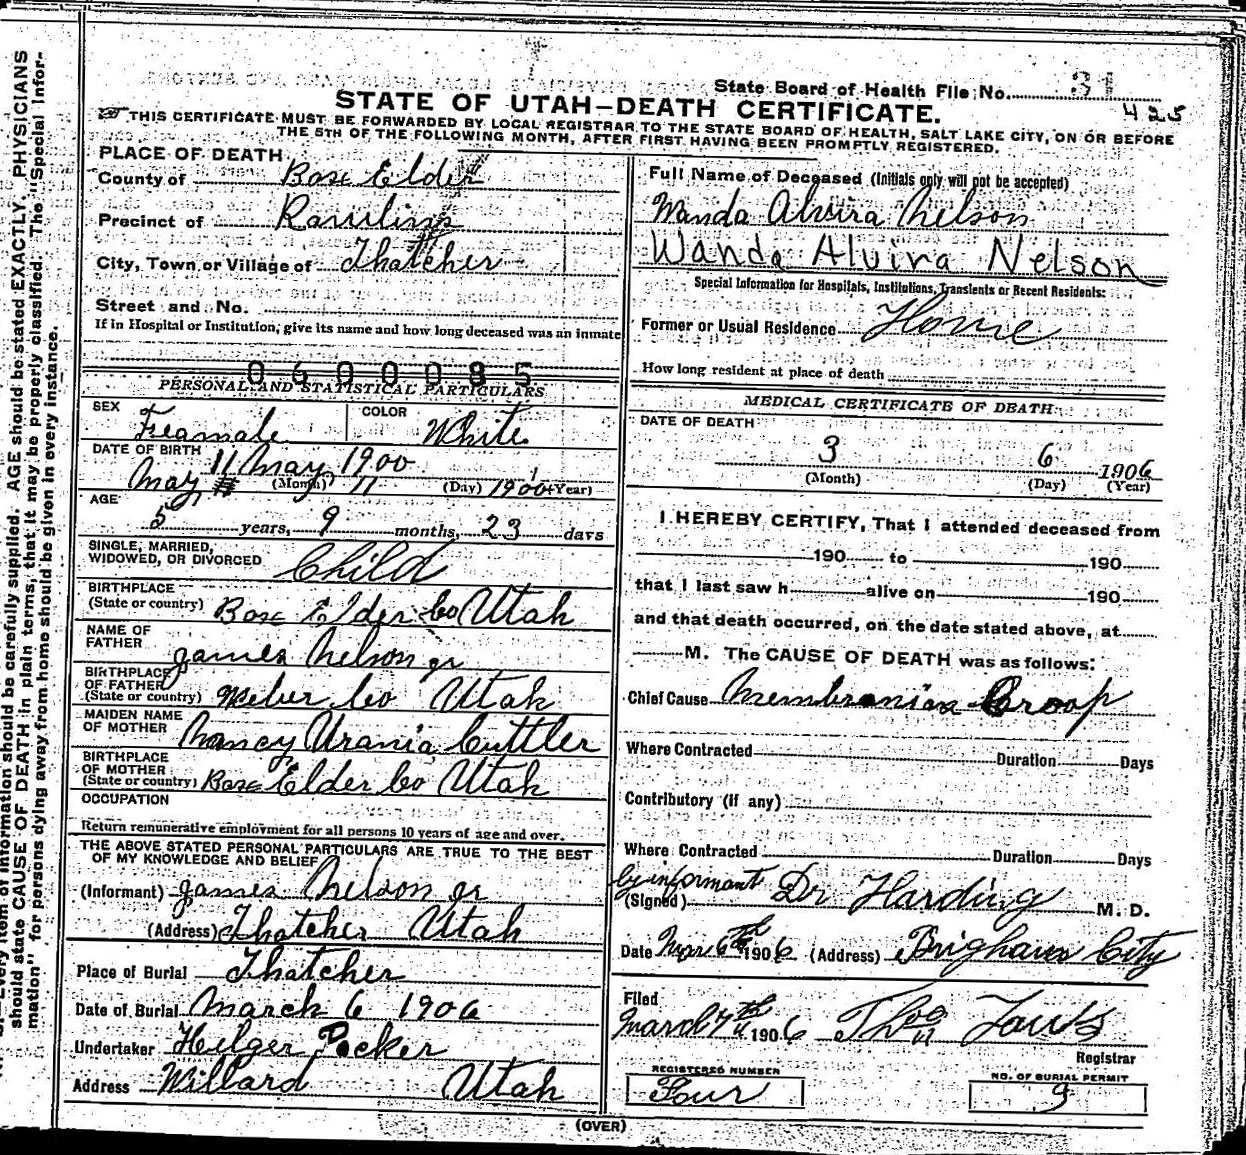 should state CAUSE OF DEATH in plain terms, that it may be properly classified. The "Special Infor-
mation" for persons dying away from home should be given in every instance.
Every item of information should be carefully supplied. AGE should be stated EXACTLY. PHYSICIANS
State Board of Health File No. 31
425
STATE OF UTAH—DEATH CERTIFICATE.
THIS CERTIFICATE MUST BE FORWARDED BY LOCAL REGISTRAR TO THE STATE BOARD OF HEALTH, SALT LAKE CITY, ON OR BEFORE
THE 5TH OF THE FOLLOWING MONTH, AFTER FIRST HAVING BEEN PROMPTLY REGISTERED.
PLACE OF DEATH
County of Box Elder
Precinct of Rawlins
City, Town or Village of Thatcher
Street and No.
If in Hospital or Institution, give its name and how long deceased was an inmate
0600085
PERSONAL AND STATISTICAL PARTICULARS
SEX Feamale COLOR White
DATE OF BIRTH 11 May 1900
May 11 1900 (Month) (Day) (Year)
AGE
5 years, 9 months, 23 days
SINGLE, MARRIED,
WIDOWED, OR DIVORCED Child
BIRTHPLACE
(State or country) Box Elder Co Utah
NAME OF
FATHER James Nelson jr
BIRTHPLACE
OF FATHER
(State or country) Weber Co Utah
MAIDEN NAME
OF MOTHER Nancy Urania Cuttler
BIRTHPLACE
OF MOTHER
(State or country) Box Elder Co Utah
OCCUPATION
Return remunerative employment for all persons 10 years of age and over.
THE ABOVE STATED PERSONAL PARTICULARS ARE TRUE TO THE BEST
OF MY KNOWLEDGE AND BELIEF
(Informant) James Nelson jr
(Address) Thatcher Utah
Place of Burial Thatcher
Date of Burial March 6 1906
Undertaker Helger Pecker
Address Willard Utah
Full Name of Deceased (Initials only will not be accepted)
Wanda Alvira Nelson
Wanda Alvira Nelson
Special Information for Hospitals, Institutions, Transients or Recent Residents:
Former or Usual Residence Home
How long resident at place of death
MEDICAL CERTIFICATE OF DEATH
DATE OF DEATH
3 6 1906
(Month) (Day) (Year)
I HEREBY CERTIFY, That I attended deceased from
190 to 190
that I last saw h alive on 190
and that death occurred, on the date stated above, at
M. The CAUSE OF DEATH was as follows:
Chief Cause Membranias Croop
Where Contracted Duration Days
Contributory (if any)
Where Contracted Duration Days
by informant
(Signed) Dr Harding M. D.
Date Mar 6th 1906 (Address) Brigham City
Filed
March 7th 1906 Thos
Registrar
REGISTERED NUMBER
Four
NO. OF BURIAL PERMIT
9
(OVER)